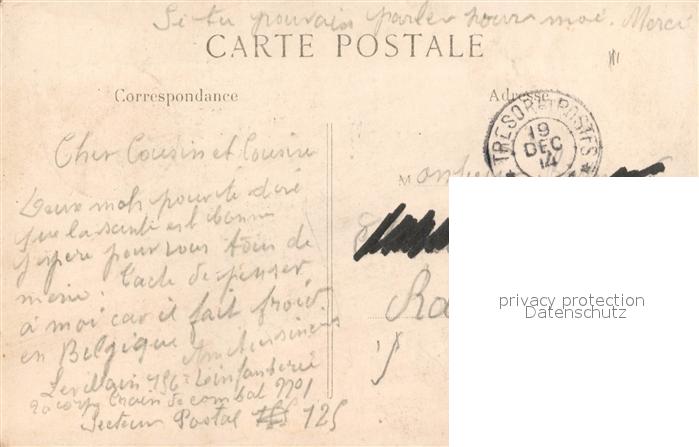 Si tu pouvais parler pour moi. Merci
CARTE POSTALE
Correspondance
Adresse
TRESOR ET POSTES
19
DEC
14
Cher Cousin et Cousine
M
Deux mots pour te dire
que la santé est bonne
j'espère pour vous tous de
meme. Tache de penser
à moi car il fait froid
en Belgique
156e
20 corps train de combat No 1
Secteur Postal 125
privacy protection
Datenschutz